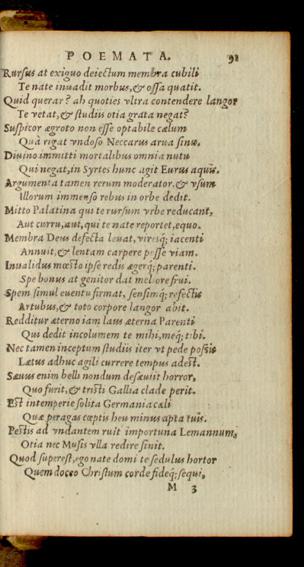 POEMATA. 91
Rursus at exiguo deiectum membra cubili
Te nate inuadit morbus, & ossa quatit.
Quid querar? ah quoties vltra contendere langor
Te vetat, & studiis otia grata negat?
Suspicor ægroto non esse optabile cælum
Quà rigat vndoso Neccarus arua sinu,
Diuino immitti mortalibus omnia nutu
Qui negat, in Syrtes hunc agit Eurus aquis.
Argumenta tamen rerum moderator, & vsum
Illorum immenso rebus in orbe dedit.
Mitto Palatina qui te rursum vrbe reducant,
Aut curru, aut, qui te nate reportet, equo.
Membra Deus defecta leuat, viresq; iacenti
Annuit, & lentam carpere posse viam.
Inualidus mœsto ipse redis ægerq; parenti.
Spe bonus at genitor dat meliore frui.
Spem simul euentu firmat, sensimq; refectis
Artubus, & toto corpore langor abit.
Redditur æterno iam laus æterna Parenti
Qui dedit incolumem te mihi, meq; tibi.
Nec tamen inceptum studiis iter vt pede possis
Lætus adhuc agili currere tempus adest.
Sæuus enim belli nondum desæuiit horror,
Quo furit, & tristi Gallia clade perit.
Est intemperie solita Germania cæli
Quæ peragas cœptis heu minus apta tuis.
Pestis ad vndantem ruit importuna Lemannum,
Otia nec Musis vlla redire sinit.
Quod superest, ego nate domi te sedulus hortor
Quem doceo Christum corde fideq; sequi,
M 3